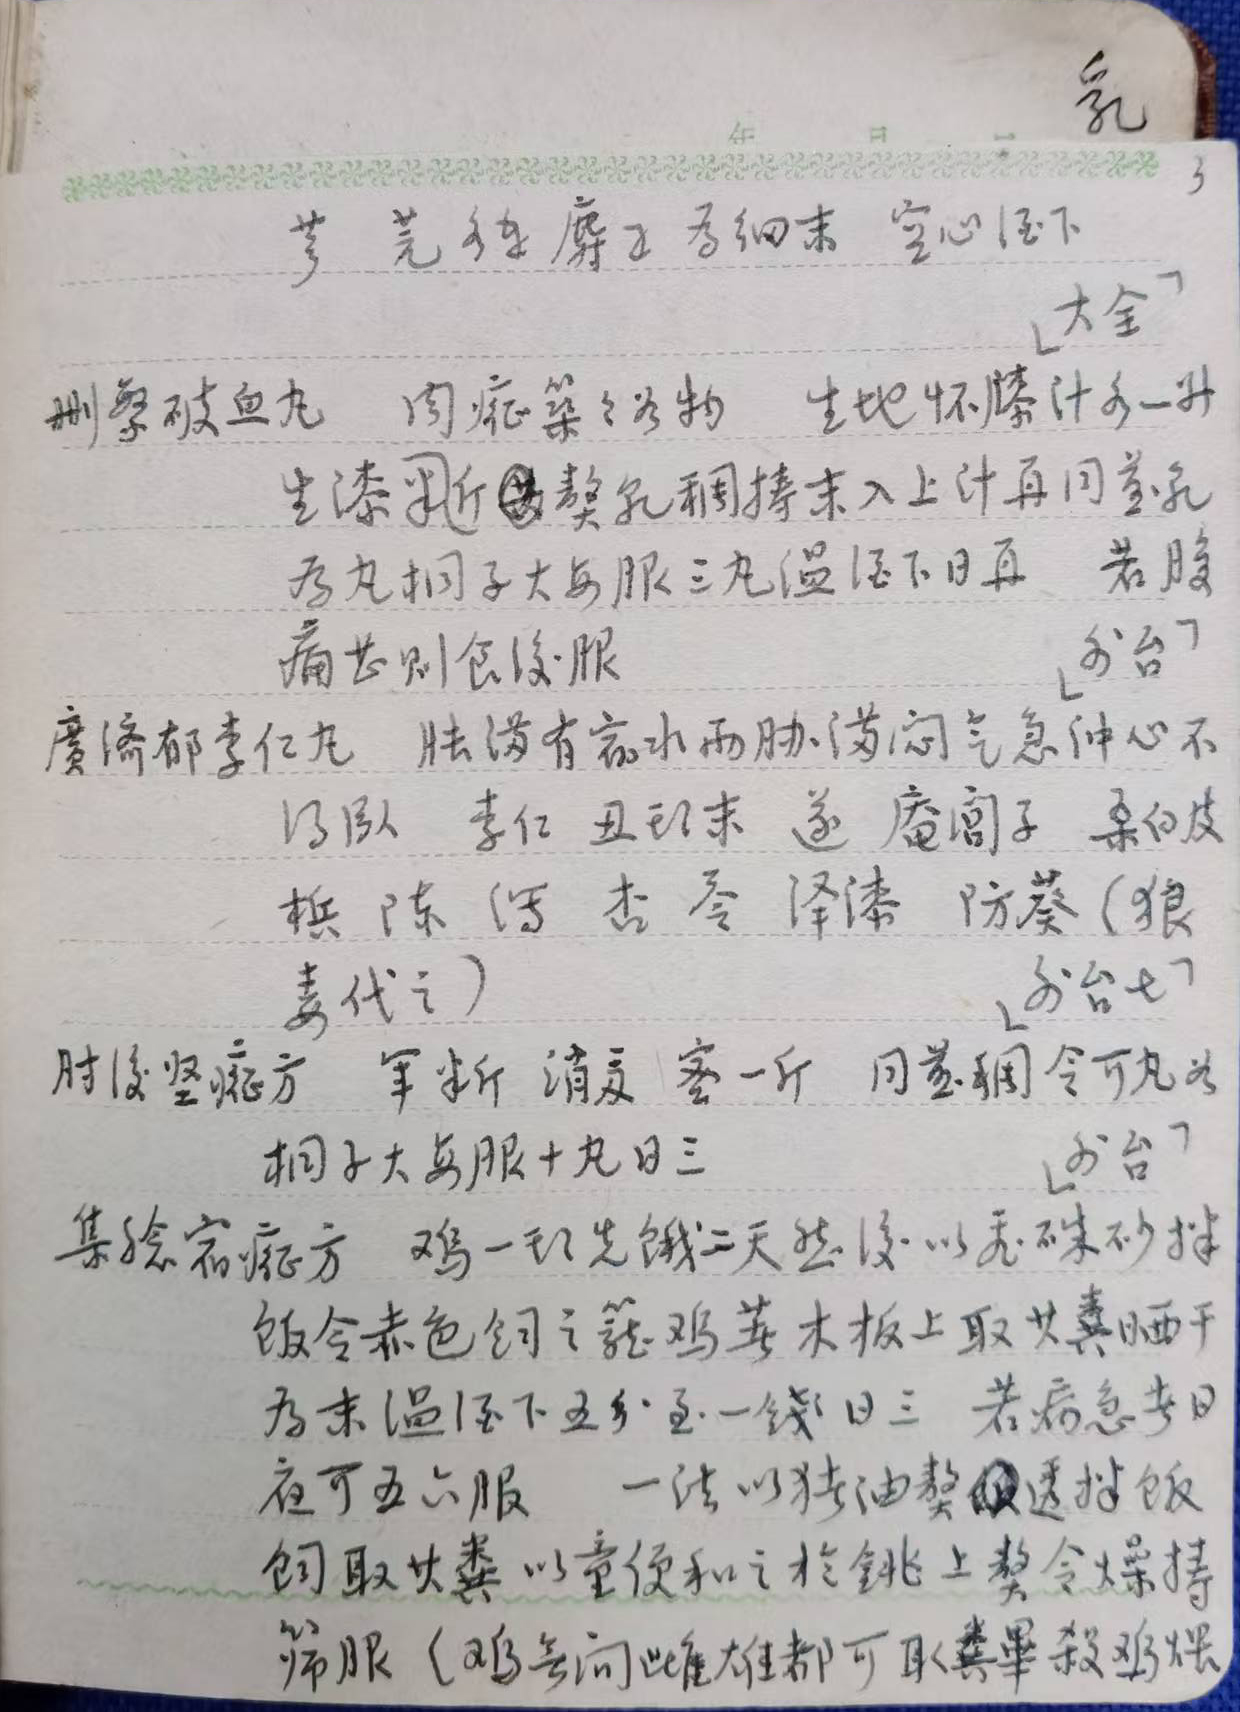 乳
年 月
3
芎 芫各 麝 为细末 空心酒下
「大全」
删繁破血丸 肉症築々如物 生地怀膝汁各一升
生漆半斤 熬 稠 末入上汁再同煎
为丸桐子大每服三丸温酒下日再 若腹
痛甚则食後服
「外台」
廣济郁李仁丸 胀满有宿水两胁满闷气急冲心不
得臥 李仁 丑头末 遂 庵闾子 桑白皮
槟 陈 泻 杏 苓 泽漆 防葵(狼
毒代之)
「外台七」
肘後坚癥方 军半斤 消 蜜一斤 同煎稠令可丸如
桐子大每服十丸日三
「外台」
集驗宿癥方 鸡一头先饿二天然後以 硃砂拌
饭令赤色饲之 鸡 木板上取其糞晒干
为末温酒下五分至一錢日三 若病急者日
夜可五六服 一法以猪油熬 透拌饭
饲取其糞以童便和之於銚上熬令燥擣
筛服(鸡无问雌雄都可取糞畢殺鸡煨